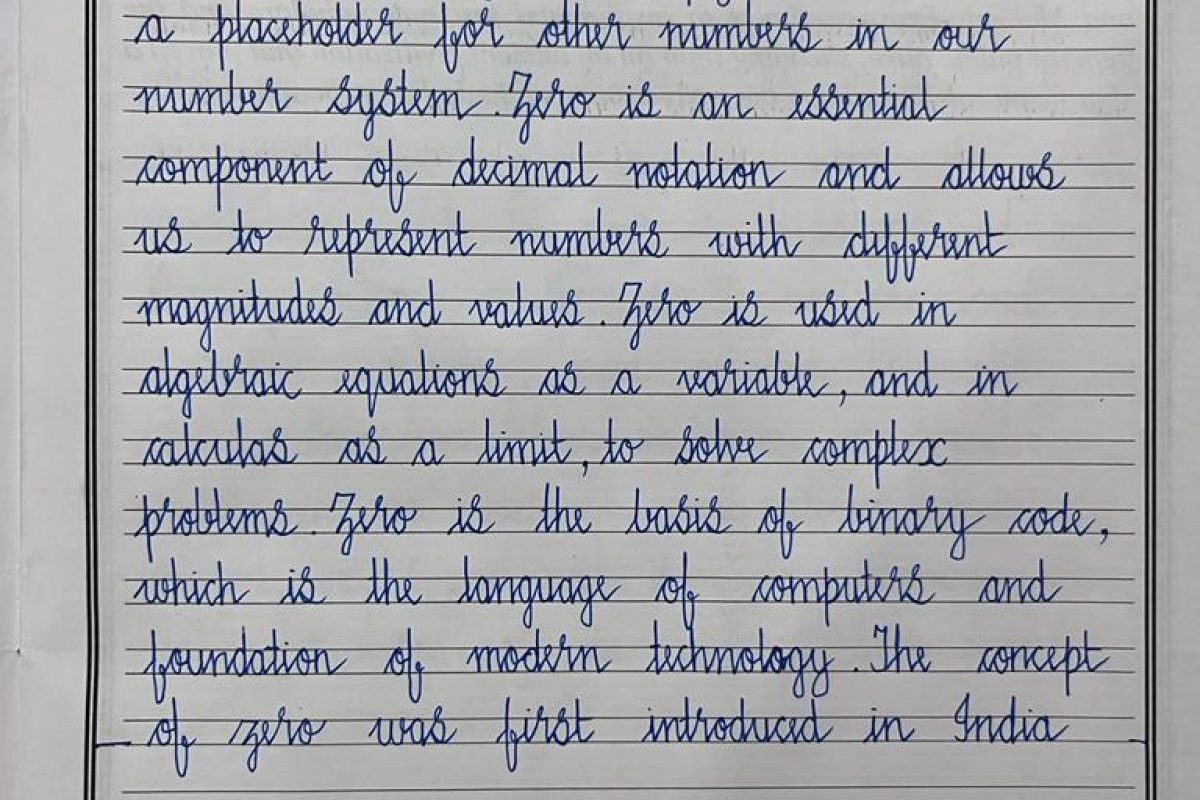 a placeholder for other numbers in our
number system. Zero is an essential
component of decimal notation and allows
us to represent numbers with different
magnitudes and values. Zero is used in
algebraic equations as a variable, and in
calculas as a limit, to solve complex
problems. Zero is the basis of binary code,
which is the language of computers and
foundation of modern technology. The concept
of zero was first introduced in India